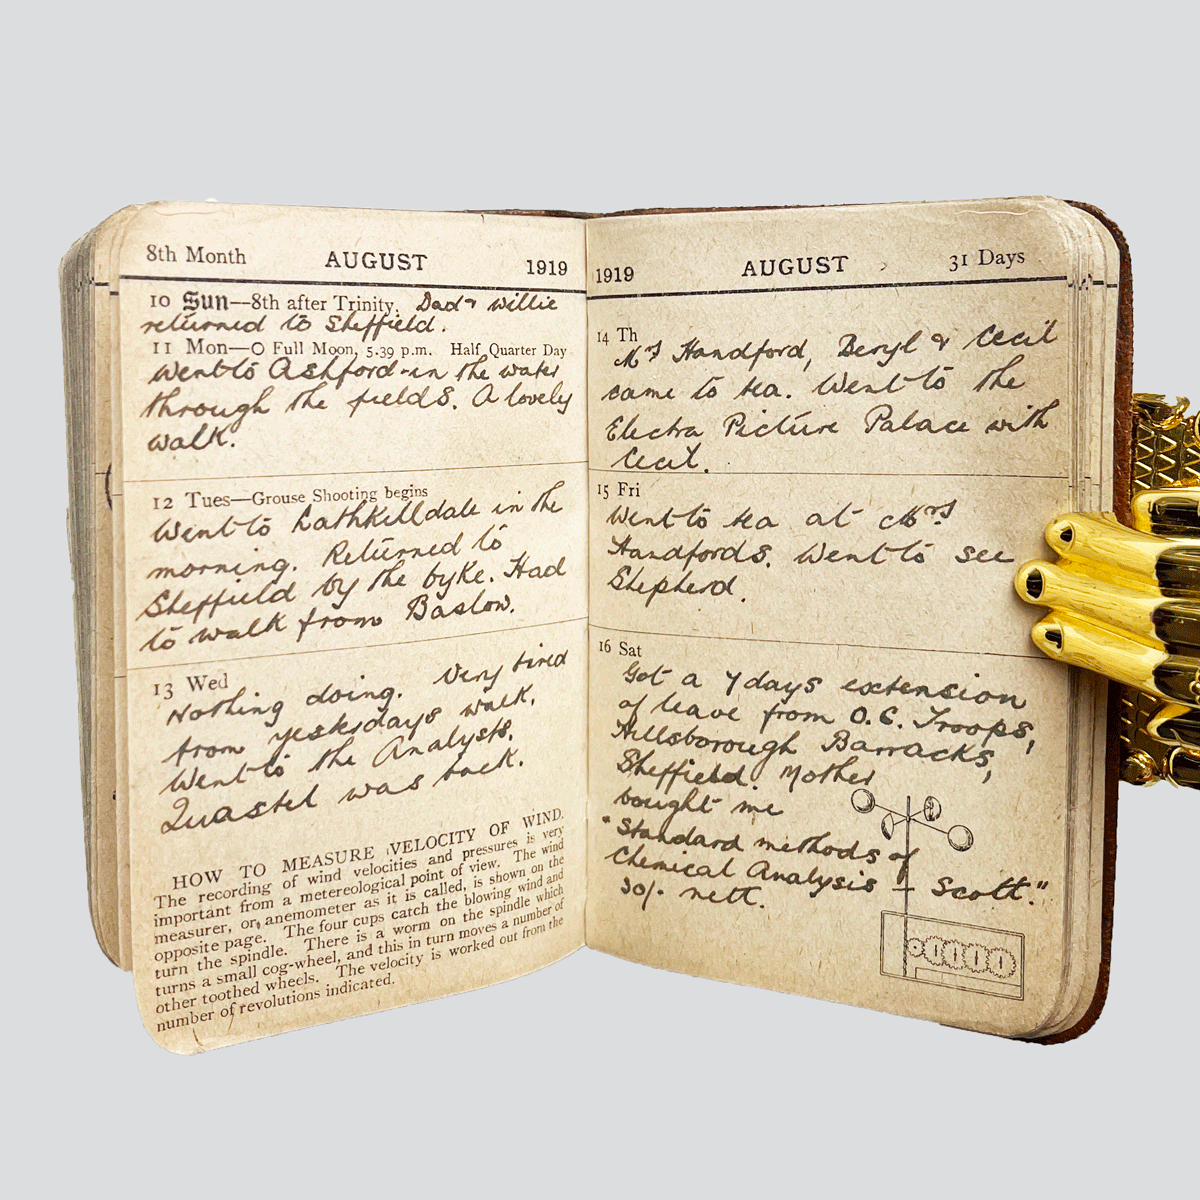 8th Month AUGUST 1919
10 Sun—8th after Trinity. Dad & Willie
returned to Sheffield.
11 Mon—O Full Moon, 5.39 p.m. Half Quarter Day
Went to Ashford-in the water
through the fields. A lovely
walk.
12 Tues—Grouse Shooting begins
Went to Lathkilldale in the
morning. Returned to
Sheffield by the byke. Had
to walk from Baslow.
13 Wed
Nothing doing. Very tired
from yesterdays walk.
Went to the Analysts.
Quastel was back.
HOW TO MEASURE VELOCITY OF WIND.
The recording of wind velocities and pressures is very
important from a metereological point of view. The wind
measurer, or, anemometer as it is called, is shown on the
opposite page. The four cups catch the blowing wind and
turn the spindle. There is a worm on the spindle which
turns a small cog-wheel, and this in turn moves a number of
other toothed wheels. The velocity is worked out from the
number of revolutions indicated.
1919 AUGUST 31 Days
14 Th
Mrs Handford, Beryl & Cecil
came to tea. Went to the
Electra Picture Palace with
Cecil.
15 Fri
Went to tea at Mrs
Handfords. Went to see
Shepherd.
16 Sat
Got a 7 days extension
of leave from O.C. Troops,
Hillsborough Barracks,
Sheffield. Mother
bought me
"Standard methods of
Chemical Analysis – Scott."
30/- nett.